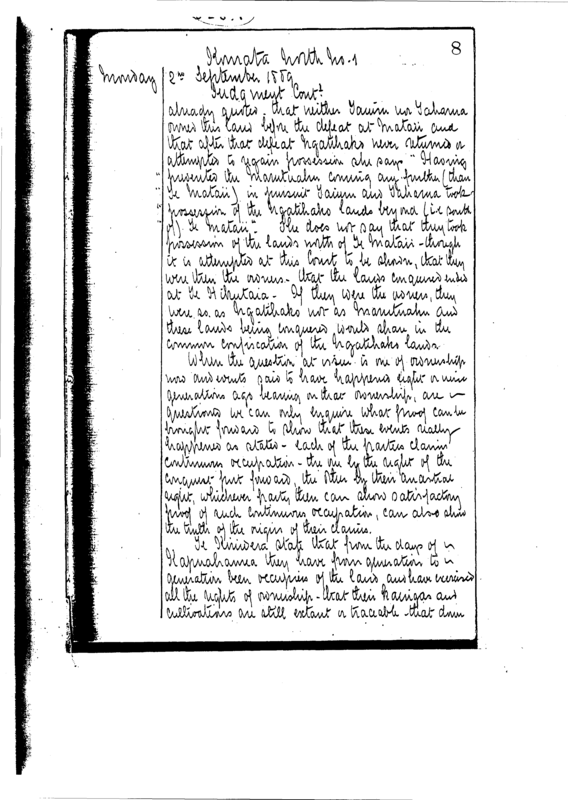 8
Komata North No. 1
Monday 2nd September 1889
Judgment Cont.d
already quoted, that neither nor Taharua
owned this land before the defeat at Mataii and
that after that defeat Ngatihako never returned or
attempted to regain possession she says "Having
prevented the Marutuahu coming any further (than
Te Mataii) in pursuit and Taharua took
possession of the Ngatihako lands beyond (i.e. south
of) Te Mataii". She does not say that they took
possession of the lands north of Te Mataii - though
it is attempted at this Court to be shown, that they
were then the owners - that the lands conquered ended
at Te Hikutaia - If they were the owners, they
were so as Ngatihako not as Marutuahu and
these lands being conquered, would share in the
common confiscation of the Ngatihako lands.
When the question at issue is one of ownership
now and events said to have happened eight or nine
generations ago bearing on that ownership, are in
question we can only enquire what proof can be
brought forward to show that these events really
happened as stated - each of the parties claim
continuous occupation - the one by the right of the
conquest put forward, the other by their ancestral
right, whichever party then can show satisfactory
proof of such continuous occupation, can also show
the truth of the origin of their claims.
Te Kiriwera state that from the days of
they have from generation to
generation been occupiers of the land and have exercised
all the rights of ownership - that their kaingas and
cultivations are still extant or traceable - that down